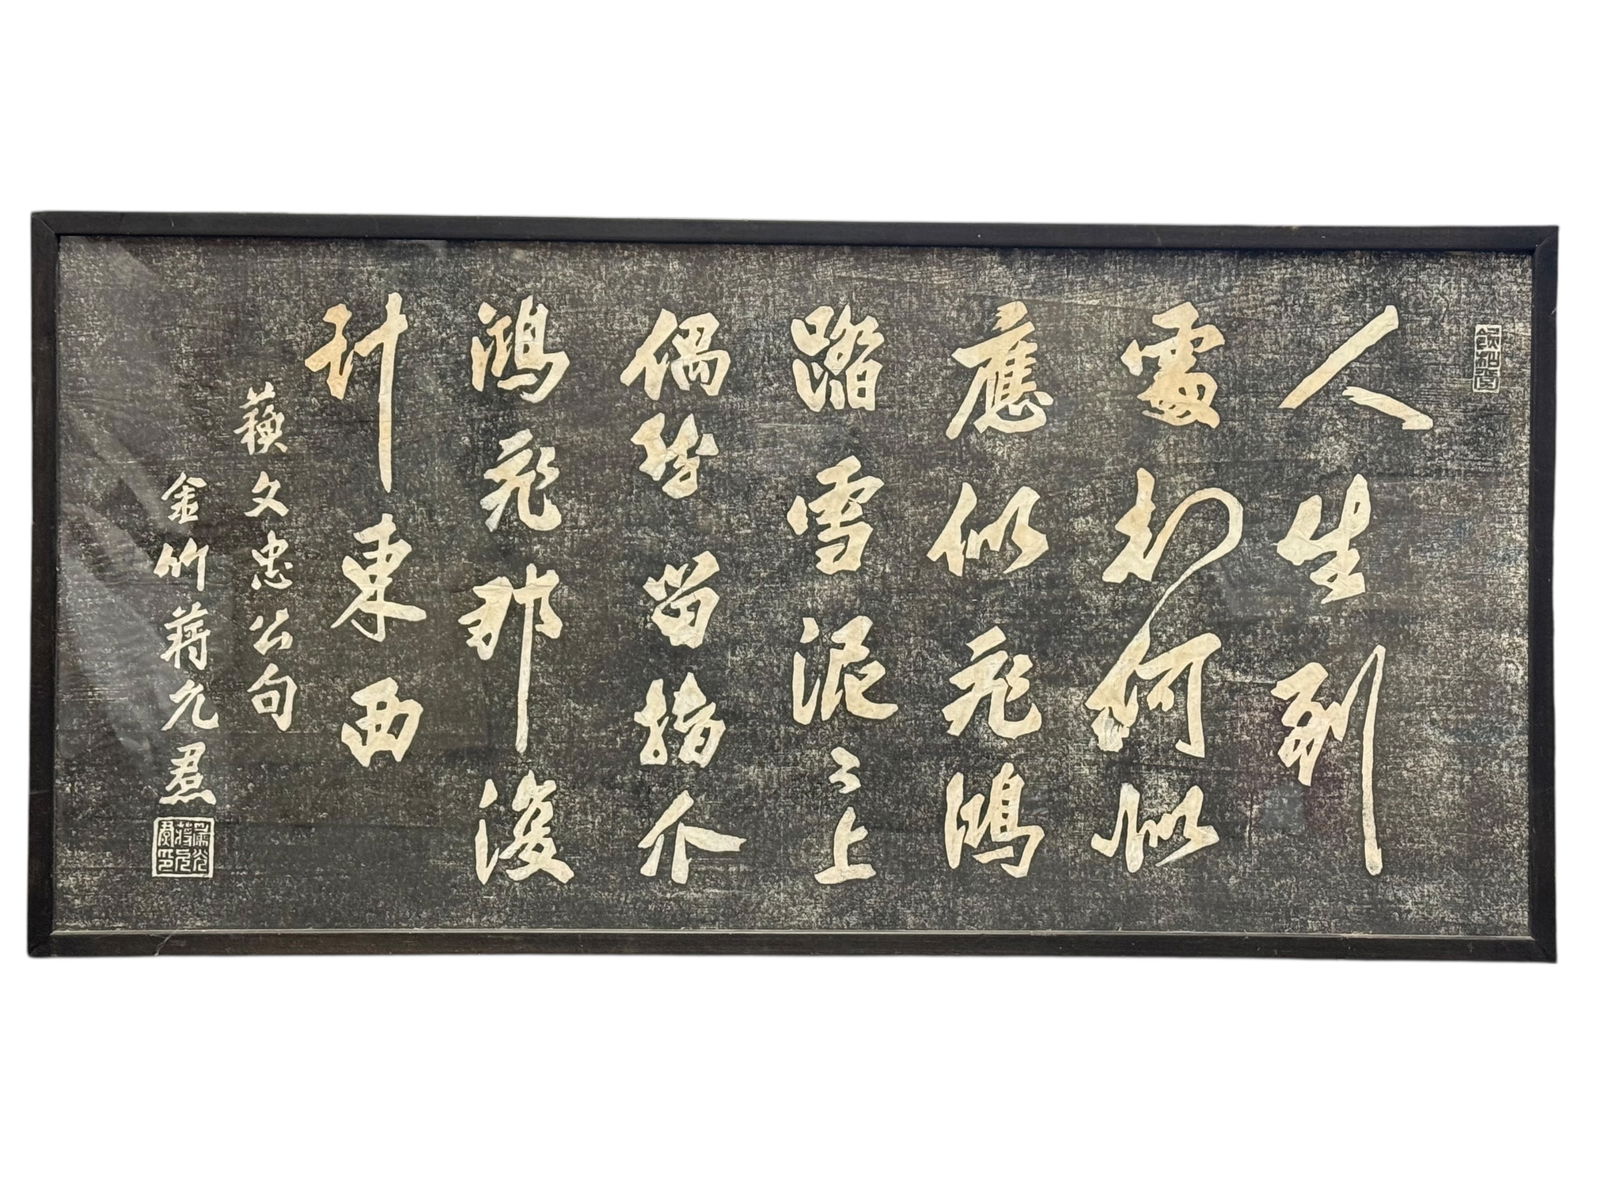 人生到
處知何似
應似飛鴻
踏雪泥々上
偶然留指爪
鴻飛那復
計東西
蘇文忠公句
金竹蔣允焄